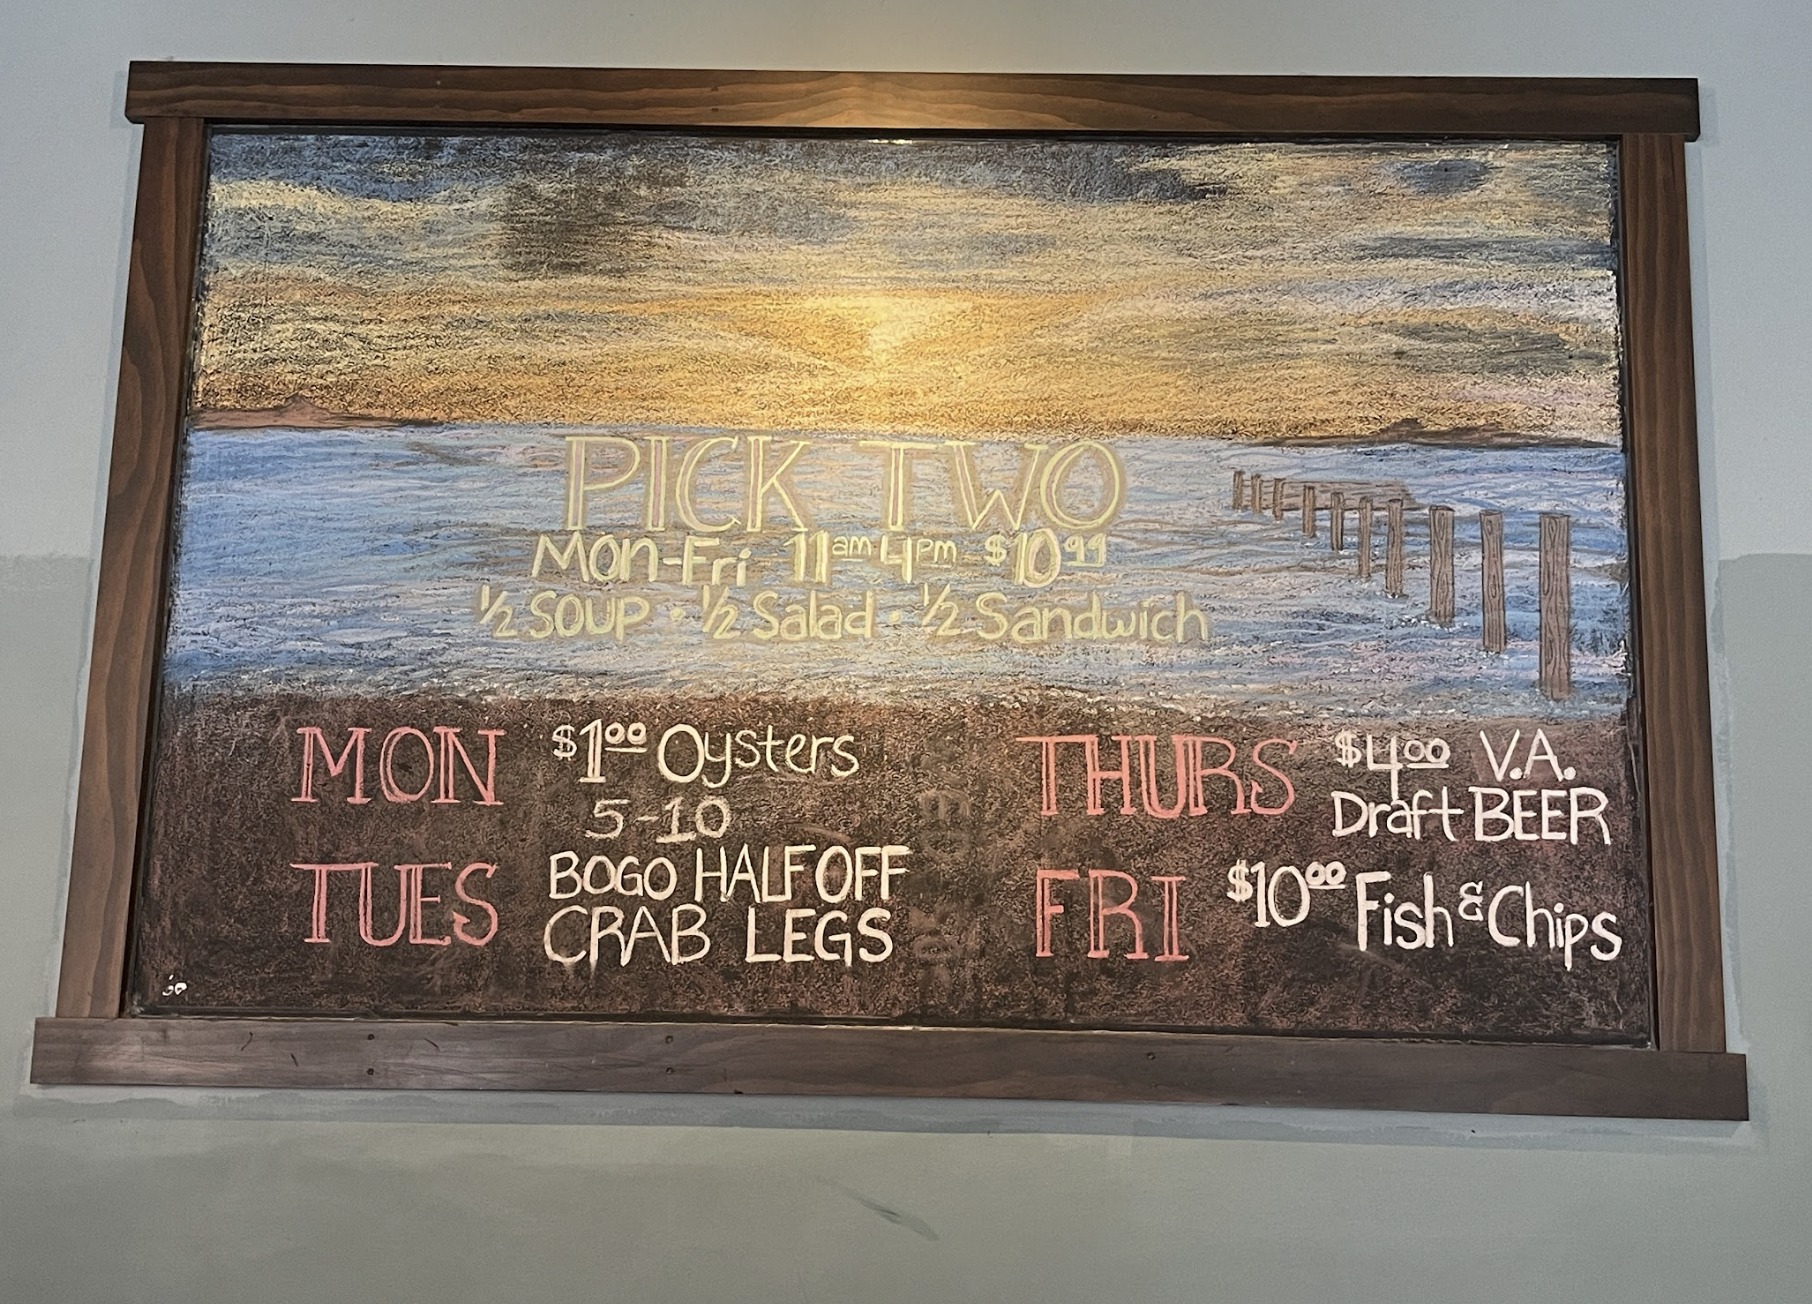 PICK TWO
Mon-Fri 11am-4pm $10.99
1/2 SOUP · 1/2 Salad · 1/2 Sandwich
MON $1.00 Oysters
5-10
TUES BOGO HALF OFF
CRAB LEGS
THURS $4.00 V.A.
Draft BEER
FRI $10.00 Fish & Chips